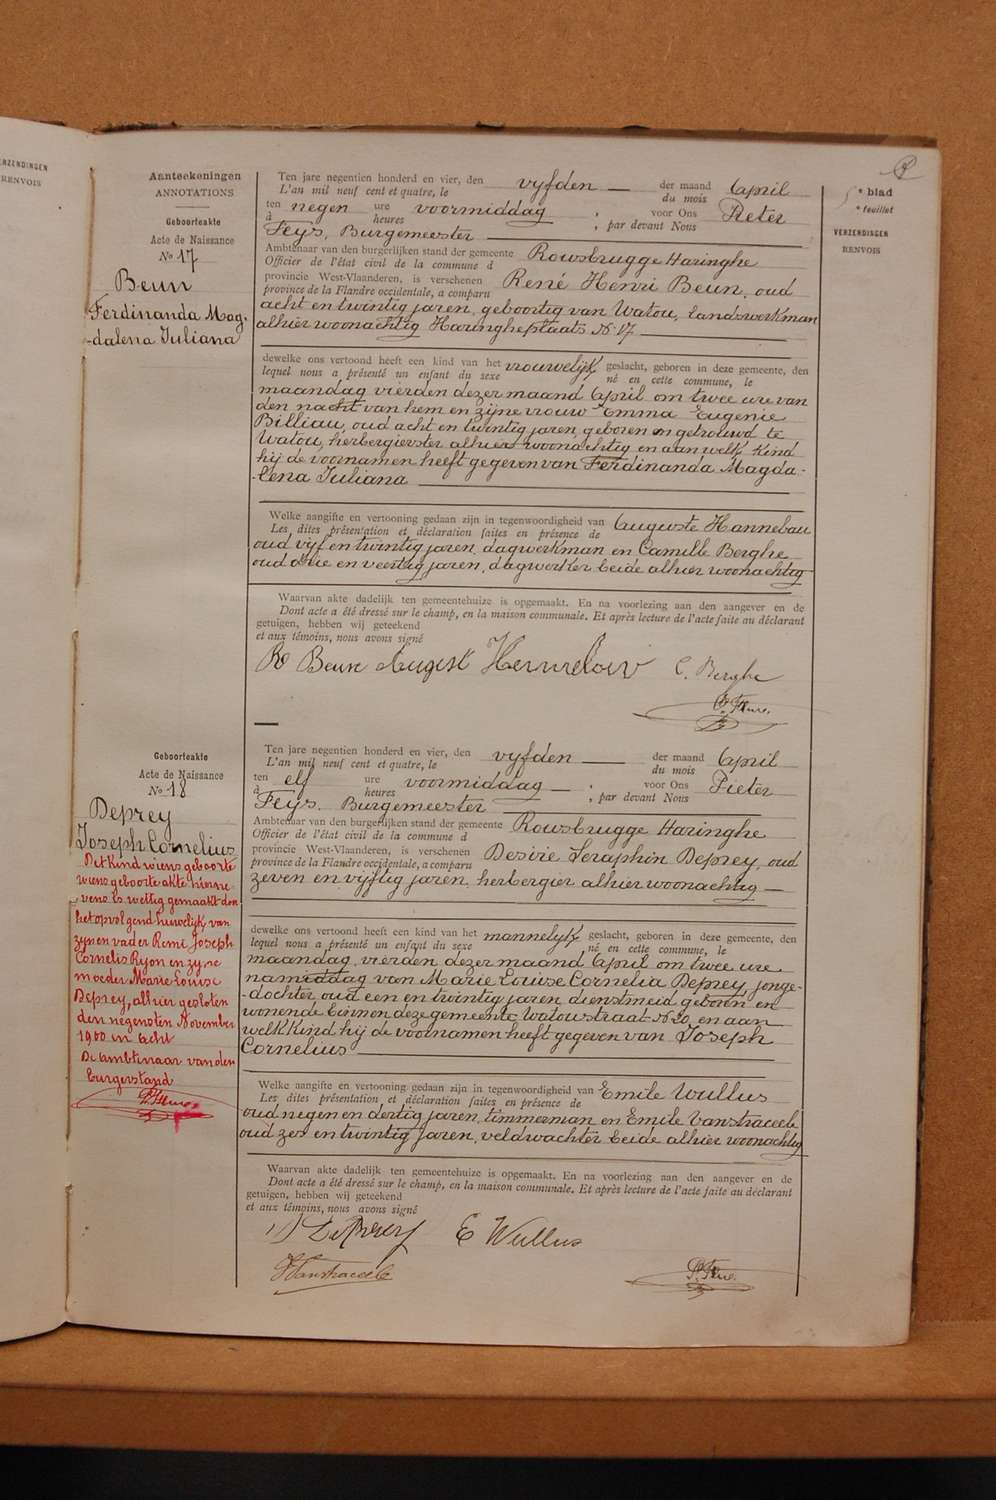 VERZENDINGEN
RENVOIS
Aanteekeningen
ANNOTATIONS
Geboorteakte
Acte de Naissance
No 17
Beun
Ferdinanda Mag-
-dalena Juliana
5e blad
e feuillet
VERZENDINGEN
RENVOIS
Ten jare negentien honderd en vier, den vyfden — der maand April
L'an mil neuf cent et quatre, le du mois
ten negen ure voormiddag, voor Ons Pieter
à heures , par devant Nous
Feys, Burgemeester
Ambtenaar van den burgerlijken stand der gemeente Rousbrugge Haringhe
Officier de l'état civil de la commune d
provincie West-Vlaanderen, is verschenen René Henri Beun, oud
province de la Flandre occidentale, a comparu
acht en twintig jaren, geboortig van Watou, landswerkman
alhier woonachtig Haringheplaats No 17
dewelke ons vertoond heeft een kind van het vrouwelyk geslacht, geboren in deze gemeente, den
lequel nous a présenté un enfant du sexe né en cette commune, le
maandag vierden dezer maand April om twee ure van
den nacht van hem en zijne vrouw Emma Eugenie
Billiau, oud acht en twintig jaren, geboren en getrouwd te
Watou, herbergierster alhier woonachtig en aan welk kind
hij de voornamen heeft gegeven van Ferdinanda Magda-
-lena Juliana
Welke aangifte en vertooning gedaan zijn in tegenwoordigheid van Auguste Hannebau
Les dites présentation et déclaration faites en présence de
oud vyf en twintig jaren, dagwerkman en Camille Berghe
oud drie en veertig jaren, dagwerker beide alhier woonachtig
Waarvan akte dadelijk ten gemeentehuize is opgemaakt. En na voorlezing aan den aangever en de
Dont acte a été dressé sur le champ, en la maison communale. Et après lecture de l'acte faite au déclarant
getuigen, hebben wij geteekend
et aux témoins, nous avons signé
R Beun August C. Berghe
Geboorteakte
Acte de Naissance
No 18
Deprey
Joseph Cornelius
Het kind wiens geboorte
wiens geboorte akte hierne-
vens is wettig gemaakt door
het opvolgend huwelijk van
zijnen vader Remi Joseph
Cornelis Ryon en zyne
moeder Marie Louise
Deprey, alhier gesloten
den negensten November
1900 en acht
De ambtenaar van den
burgerstand
Ten jare negentien honderd en vier, den vyfden — der maand April
L'an mil neuf cent et quatre, le du mois
ten elf ure voormiddag — , voor Ons Pieter
à heures , par devant Nous
Feys, Burgemeester
Ambtenaar van den burgerlijken stand der gemeente Rousbrugge Haringhe
Officier de l'état civil de la commune d
provincie West-Vlaanderen, is verschenen Desiré Seraphin Deprey, oud
province de la Flandre occidentale, a comparu
zeven en vyftig jaren, herbergier alhier woonachtig —
dewelke ons vertoond heeft een kind van het mannelyk geslacht, geboren in deze gemeente, den
lequel nous a présenté un enfant du sexe né en cette commune, le
maandag, vierden dezer maand April om twee ure
namiddag van Marie Louise Cornelia Deprey, jonge-
-dochter oud een en twintig jaren, dienstmeid geboren en
wonende binnen deze gemeente Watoustraat No 20, en aan
welk kind hij de voornamen heeft gegeven van Joseph
Cornelius
Welke aangifte en vertooning gedaan zijn in tegenwoordigheid van Emile Wullus
Les dites présentation et déclaration faites en présence de
oud negen en dertig jaren, timmerman en Emile Vanstraceele
oud zes en twintig jaren, veldwachter beide alhier woonachtig
Waarvan akte dadelijk ten gemeentehuize is opgemaakt. En na voorlezing aan den aangever en de
Dont acte a été dressé sur le champ, en la maison communale. Et après lecture de l'acte faite au déclarant
getuigen, hebben wij geteekend
et aux témoins, nous avons signé
D Deprey E Wullus
Vanstraceele